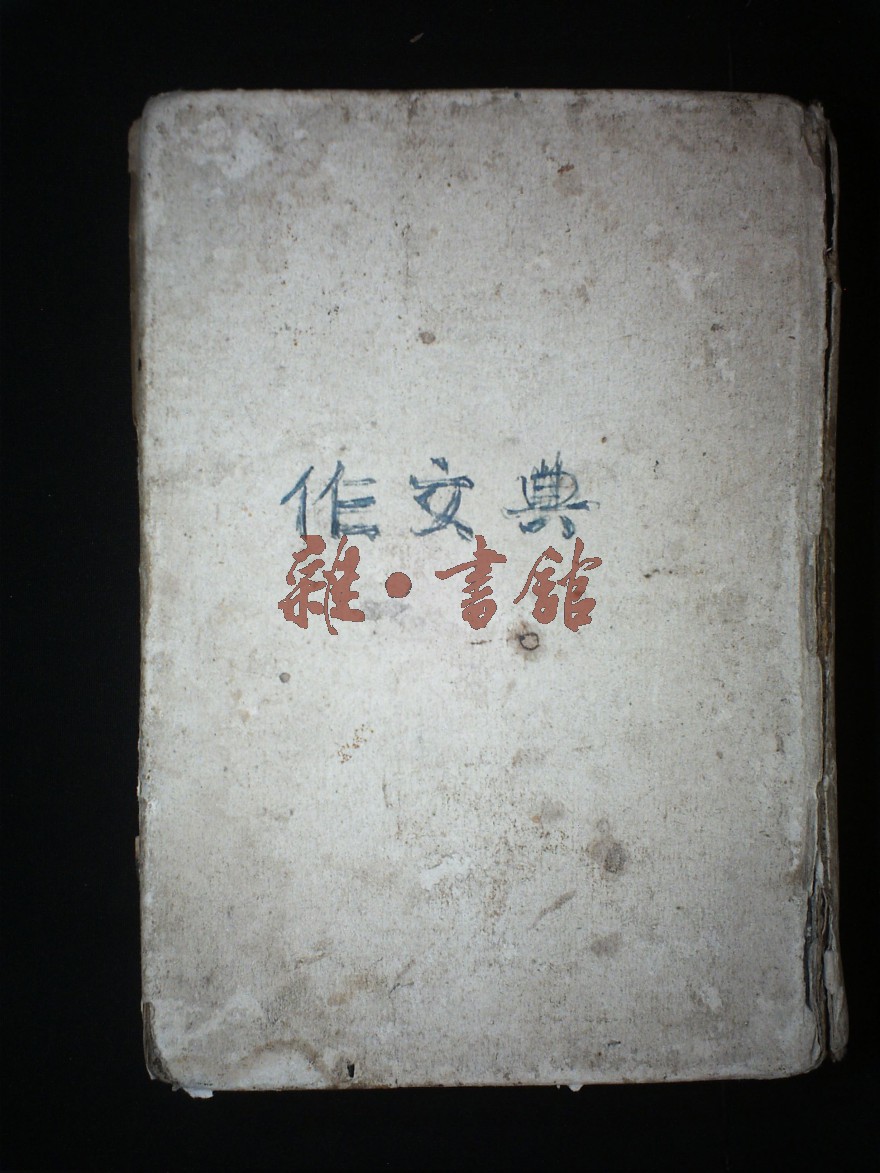 作文典
雜·書館